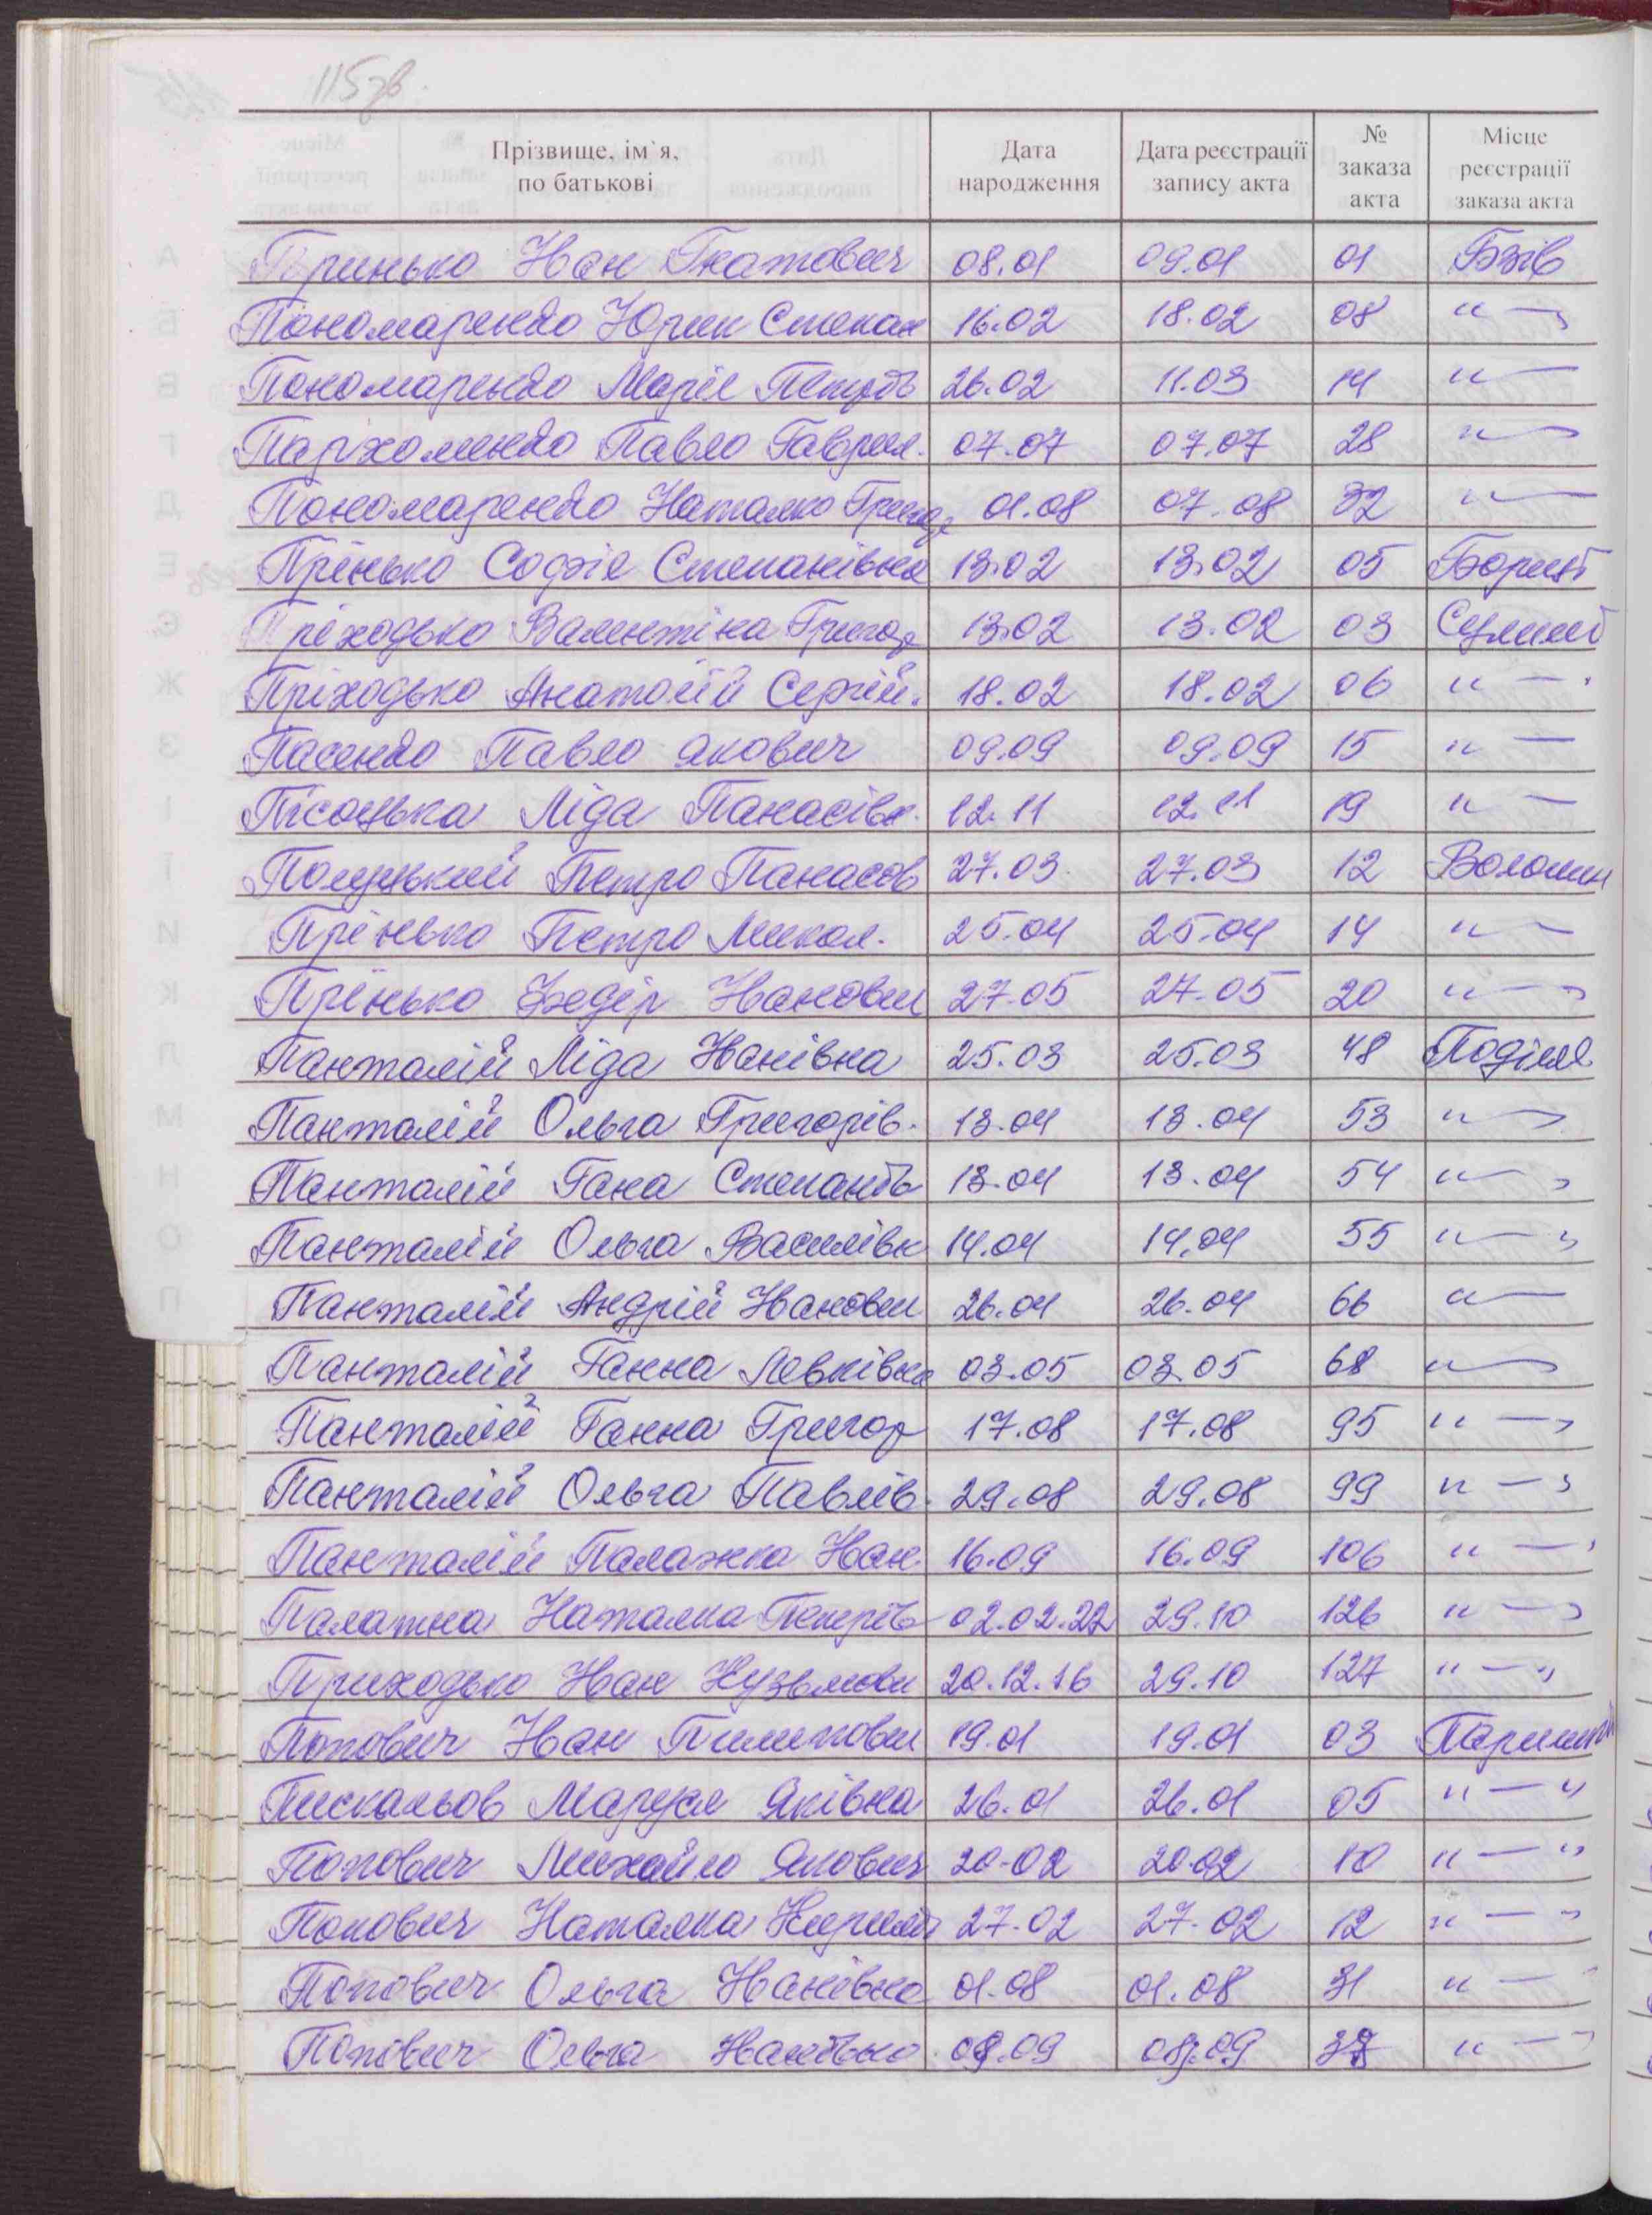 115 зв.
Прізвище, ім`я, по батькові | Дата народження | Дата реєстрації запису акта | № заказа акта | Місце реєстрації заказа акта
Принько Іван Гнатович 08.01 09.01 01 Бзів
Пономаренко Юрик Степан 16.02 18.02 08 " —
Пономаренко Марія Петрів 26.02 11.03 14 " —
Пархоменко Павло Гаврил. 07.07 07.07 28 " —
Пономаренко Наталко Григор 01.08 07.08 32 " —
Прінько Софія Степанівна 13.02 13.02 05 Борисп
Пріходько Валентіна Григор 13.02 13.02 03 Сулимів
Пріходько Анатолій Сергій. 18.02 18.02 06 " —
Пасенко Павло Якович 09.09 09.09 15 " —
Пісоцька Ліда Панасівн. 12.11 12.11 19 " —
Полуцький Петро Панасов 27.03 27.03 12 Волошин
Прінько Петро Микол. 25.04 25.04 14 " —
Прінько Федір Іванови 27.05 27.05 20 " —
Панталій Ліда Іванівна 25.03 25.03 48 Поділля
Панталій Ольга Григорів. 13.04 13.04 53 " —
Панталій Гана Степанів 13.04 13.04 54 " —
Панталій Ольга Василівн 14.04 14.04 55 " —
Панталій Андрій Іванови 26.04 26.04 66 " —
Панталій Ганна Левківна 03.05 03.05 68 " —
Панталій Ганна Григор 17.08 17.08 95 " —
Панталій Ольга Павлів. 29.08 29.08 99 " —
Панталій Палажка Іван 16.09 16.09 106 " —
Палатна Наталка Петрів 02.02.22 29.10 126 " —
Приходько Іван Кузьмови 20.12.16 29.10 127 " — "
Попович Іван Пилипови 19.01 19.01 03 Паришк
Пискальов Маруся Яківна 26.01 26.01 05 " — "
Попович Михайло Якович 20-02 20.02 10 " — "
Попович Наталка Кирилів 27-02 27-02 12 " — "
Попович Ольга Іванівна 01-08 01.08 31 " —
Попович Ольга Іванівна 09.09 09.09 " —